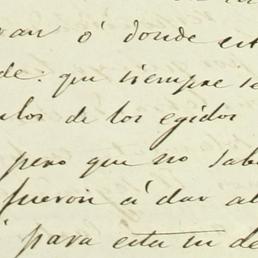 van ó donde est
de: que siempre se
ulos de los egidos
pero que no sab
fueron á dar al
para esta su de